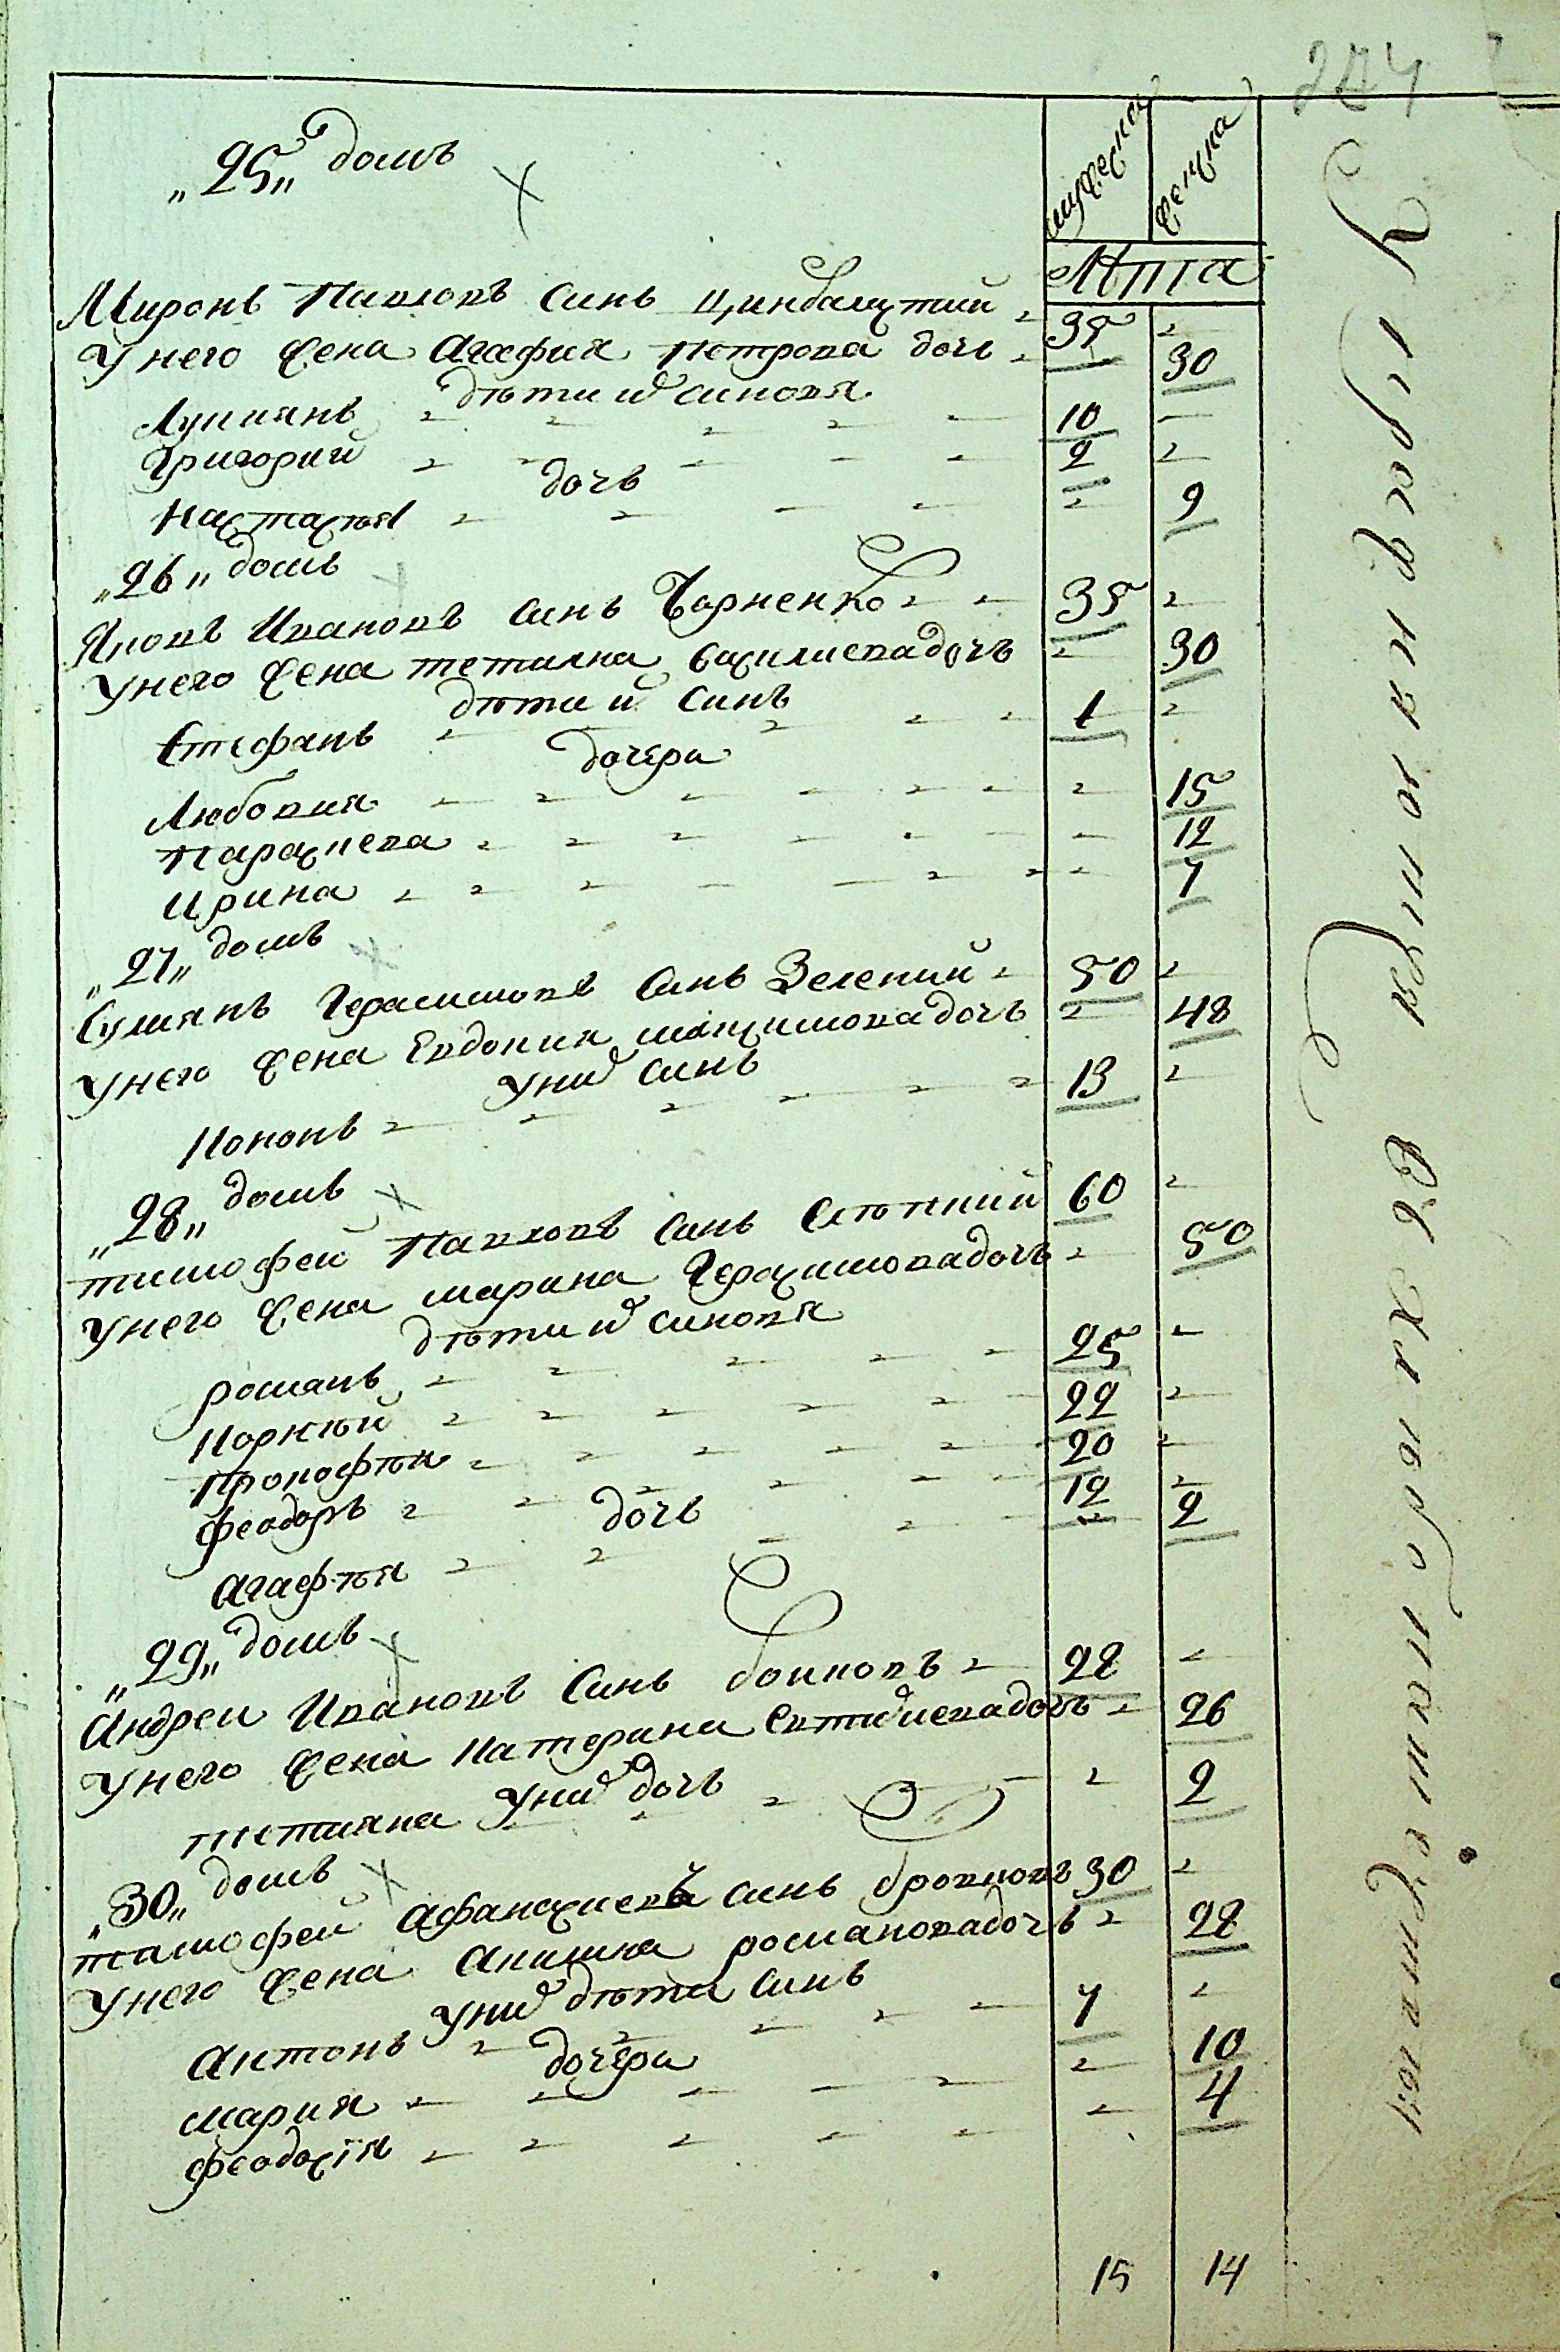 274
мужеска женска
Лѣта
„25„ домъ
Миронъ Павловъ синъ Цинбалистий 35
У него жена Агафия Петрова дочь 30
дѣти их синовя
Лукиянъ 10
Григорий 2
дочь
Настасѣя 9
„26„ домъ
Яковъ Ивановъ синъ Чорненко 35
У него жена тетияна василиева дочъ 30
дѣти их синъ
Стефанъ 1
дочери
Любовия 15
Параскева 12
Ирина 7
„27„ домъ
Герасимовъ синъ Зелений 50
У него жена Евдокия максимова дочъ 48
У них синъ
Кононъ 13
„28„ домъ
тимофей Павловъ синъ Слѣпий 60
У него жена марина Герасимова дочъ 50
дѣти их синовя
романъ 25
Корнѣй 22
Прокофѣи 20
феодоръ 12
дочь
Агафѣя 2
„29„ домъ
Андреи Ивановъ Синъ боиковъ 28
У него жена Катерина Евтихиева дочь 26
У них дочь
тетияна 2
„30„ домъ
тимофей Афанасиевъ синъ бровковъ 30
У него жена Акилина романова дочъ 28
У них дѣти синъ
Антонъ 7
дочери
мария 10
феодосїя 4
15 14